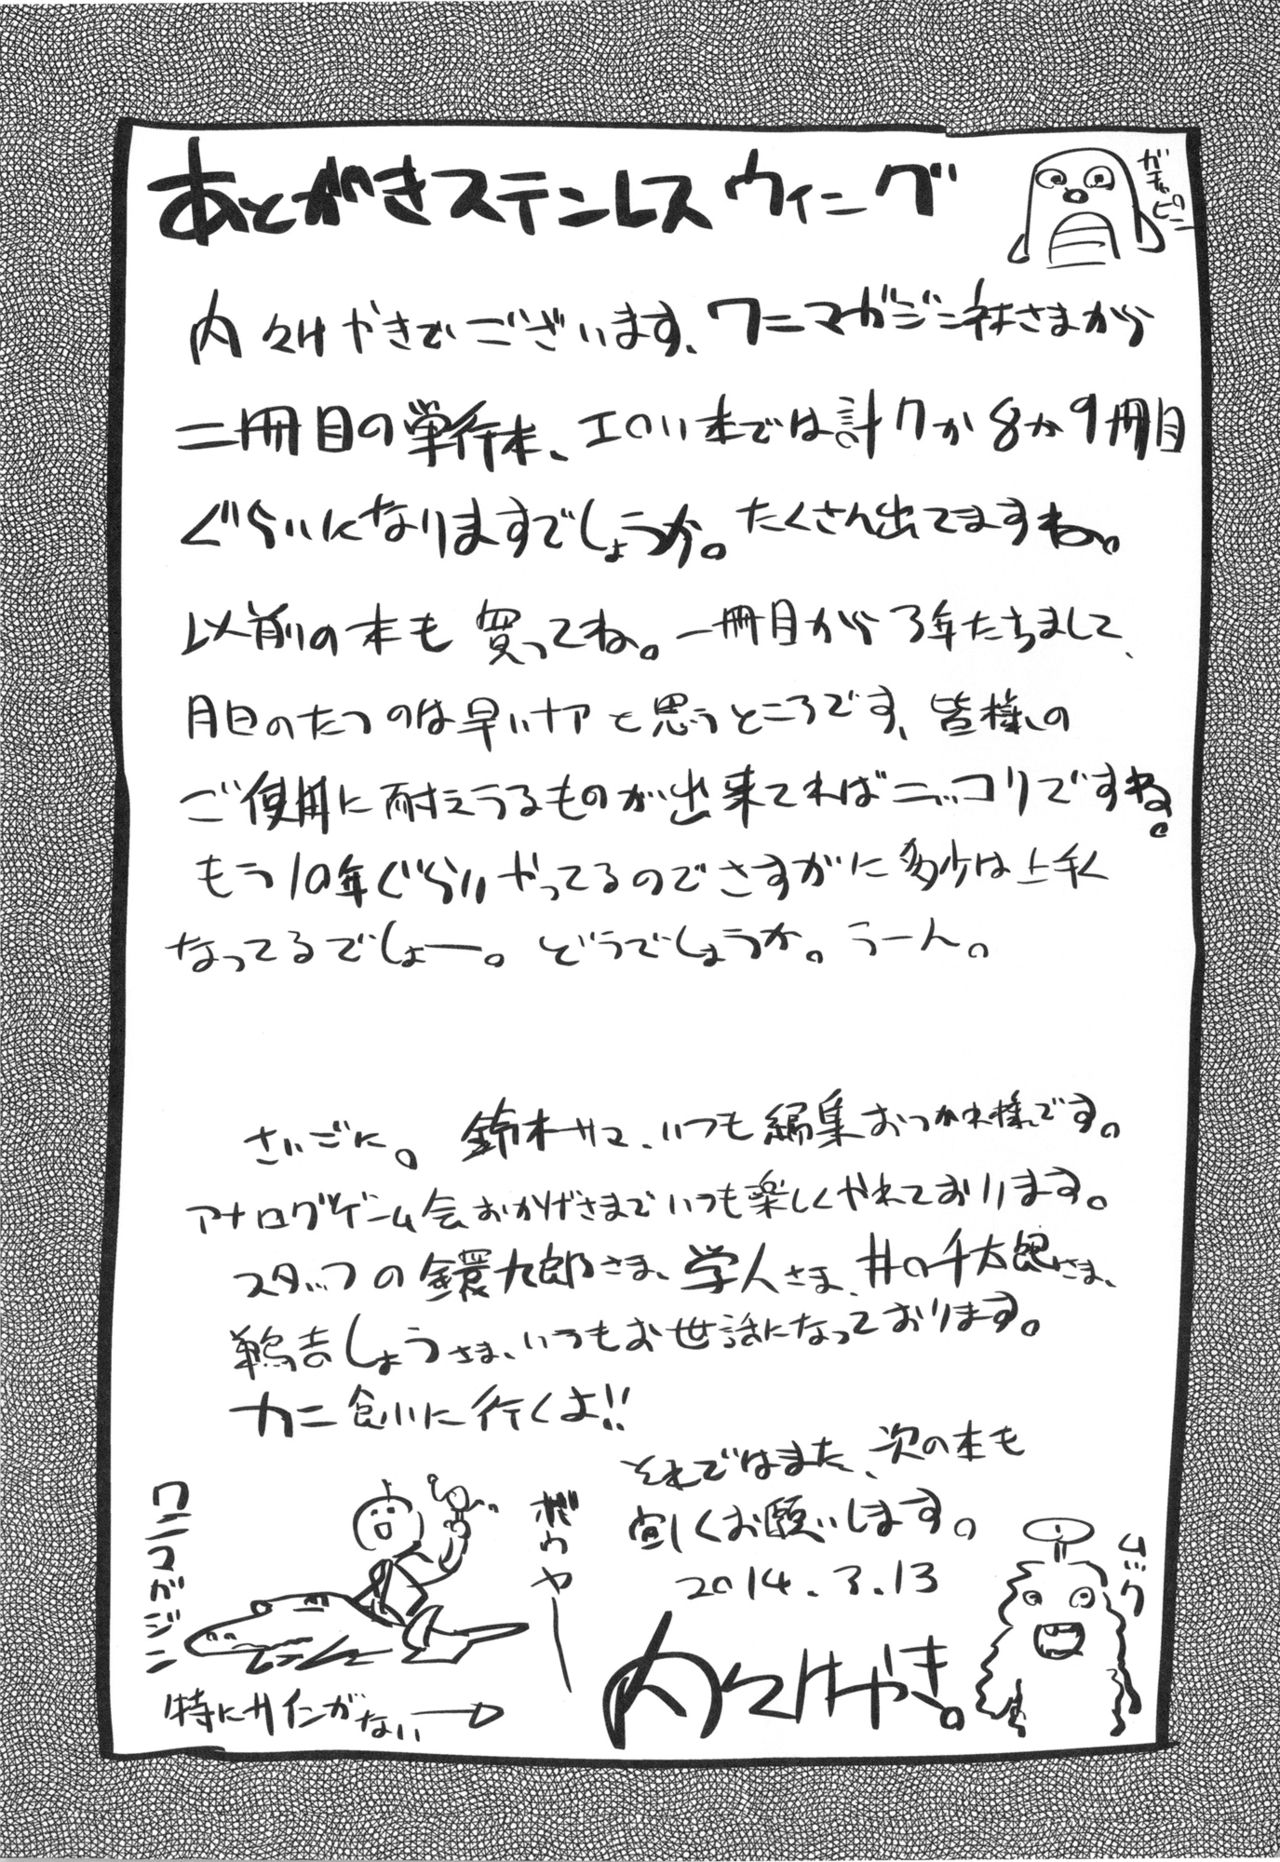 あとがきステンレスウィニング
ガチャピン
内々けやきでございます、ワニマガジン社さまから
二冊目の単行本、エロい本では計7か8か9冊目
ぐらいになりますでしょうか。たくさん出てますね。
以前の本も買ってね。一冊目から3年たちまして、
月日のたつのは早いナアと思うところです、皆様の
ご使用に耐えうるものが出来てればニッコリですね。
もう10年ぐらいやってるのでさすがに多少は上手く
なってるでしょー。どうでしょうか。うーん。
さいごに。鈴木サマ、いつも編集おつかれ様です。
アナログゲーム会おかげさまでいつも楽しくやれております。
スタッフの鐶九郎さま、学人さま、井の千太郎さま、
鶏吉しょうさま、いつもお世話になっております。
カニ食いに行くよ!!
それではまた、次の本も
宜しくお願いします。
2014.3.13
内々けやき。
ワニマガジン
ボウヤー
特にサインがない
ムック